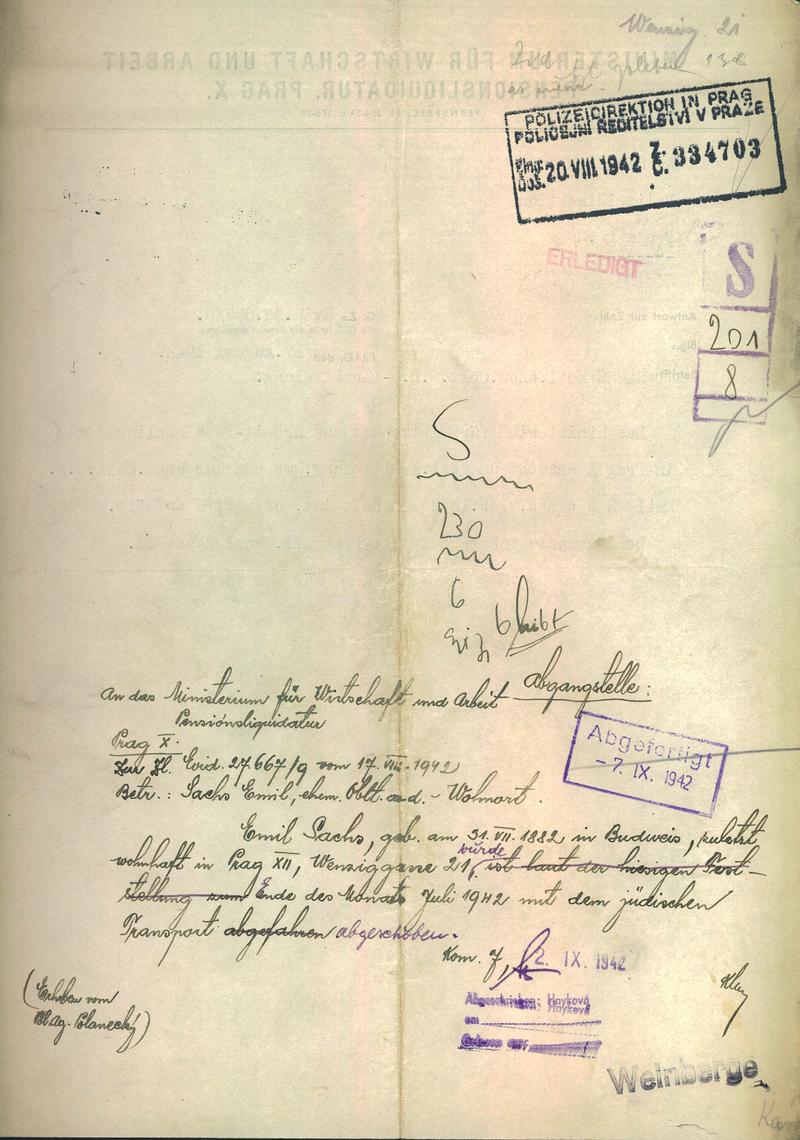 Wenzig. 21
POLIZEIDIREKTION IN PRAG
POLICEJNÍ ŘEDITELSTVÍ V PRAZE
20.VIII.1942 Z. Č. 334703
ERLEDIGT
S
201
8
S
230
6
bleibt
Abgangstelle:
An das Ministerium für Wirtschaft und Arbeit
Pensionsliquidatur
Prag X.
Zur Zl. Evid. 27.667/9 vom 17. VIII. 1942
Betr.: Sachs Emil, ehem. Oblt. a.d. - Wohnort.
Abgefertigt
-7. IX. 1942
Emil Sachs, geb. am 31. VII. 1882 in Budweis, zuletzt
wohnhaft in Prag XII, Wenziggasse 21, wurde ist laut der hiesigen Fest-
stellung zum Ende des Monats Juli 1942 mit dem jüdischen
Transport abgefahren abgeschoben.
Kom. 7, 2. IX. 1942
(Erhoben vom
Polanecký)
Abgeschrieben: Hnyková
am
Gelesen
Weinberge